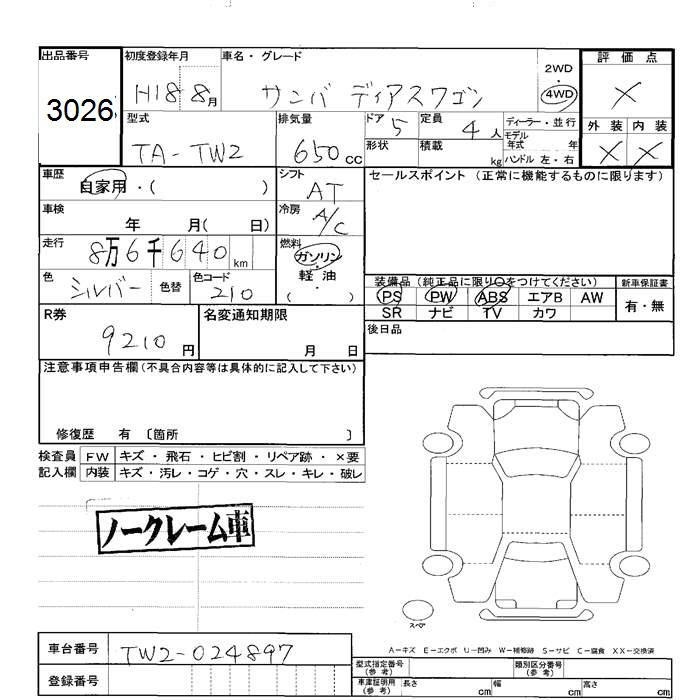 出品番号 初度登録年月 車名・グレード 評価点
3026 H18 8月 サンバ ディアスワゴン 2WD・4WD ×
型式 排気量 ドア 5 定員 4人 ディーラー・並行 外装 内装
TA-TW2 650cc 形状 積載 kg モデル年式 年 ハンドル 左・右 × ×
車歴 自家用・( ) シフト AT セールスポイント(正常に機能するものに限ります)
車検 年 月( 日) 冷房 A/C
走行 8万6千640km 燃料 ガソリン・軽油・( )
色 シルバー 色替 色コード 210
装備品(純正品に限り○をつけてください) 新車保証書
PS PW ABS エアB AW 有・無
SR ナビ TV カワ
R券 9210円 名変通知期限 月 日 後日品
注意事項申告欄(不具合内容等は具体的に記入して下さい)
修復歴 有 〔箇所 〕
検査員 FW キズ・飛石・ヒビ割・リペア跡・×要
記入欄 内装 キズ・汚レ・コゲ・穴・スレ・キレ・破レ
ノークレーム車
スペア
A-キズ E-エクボ U-凹み W-補修跡 S-サビ C-腐食 XX-交換済
車台番号 TW2-024897
登録番号
型式指定番号(参考) 類別区分番号(参考)
車庫証明用(参考) 長さ cm 幅 cm 高さ cm